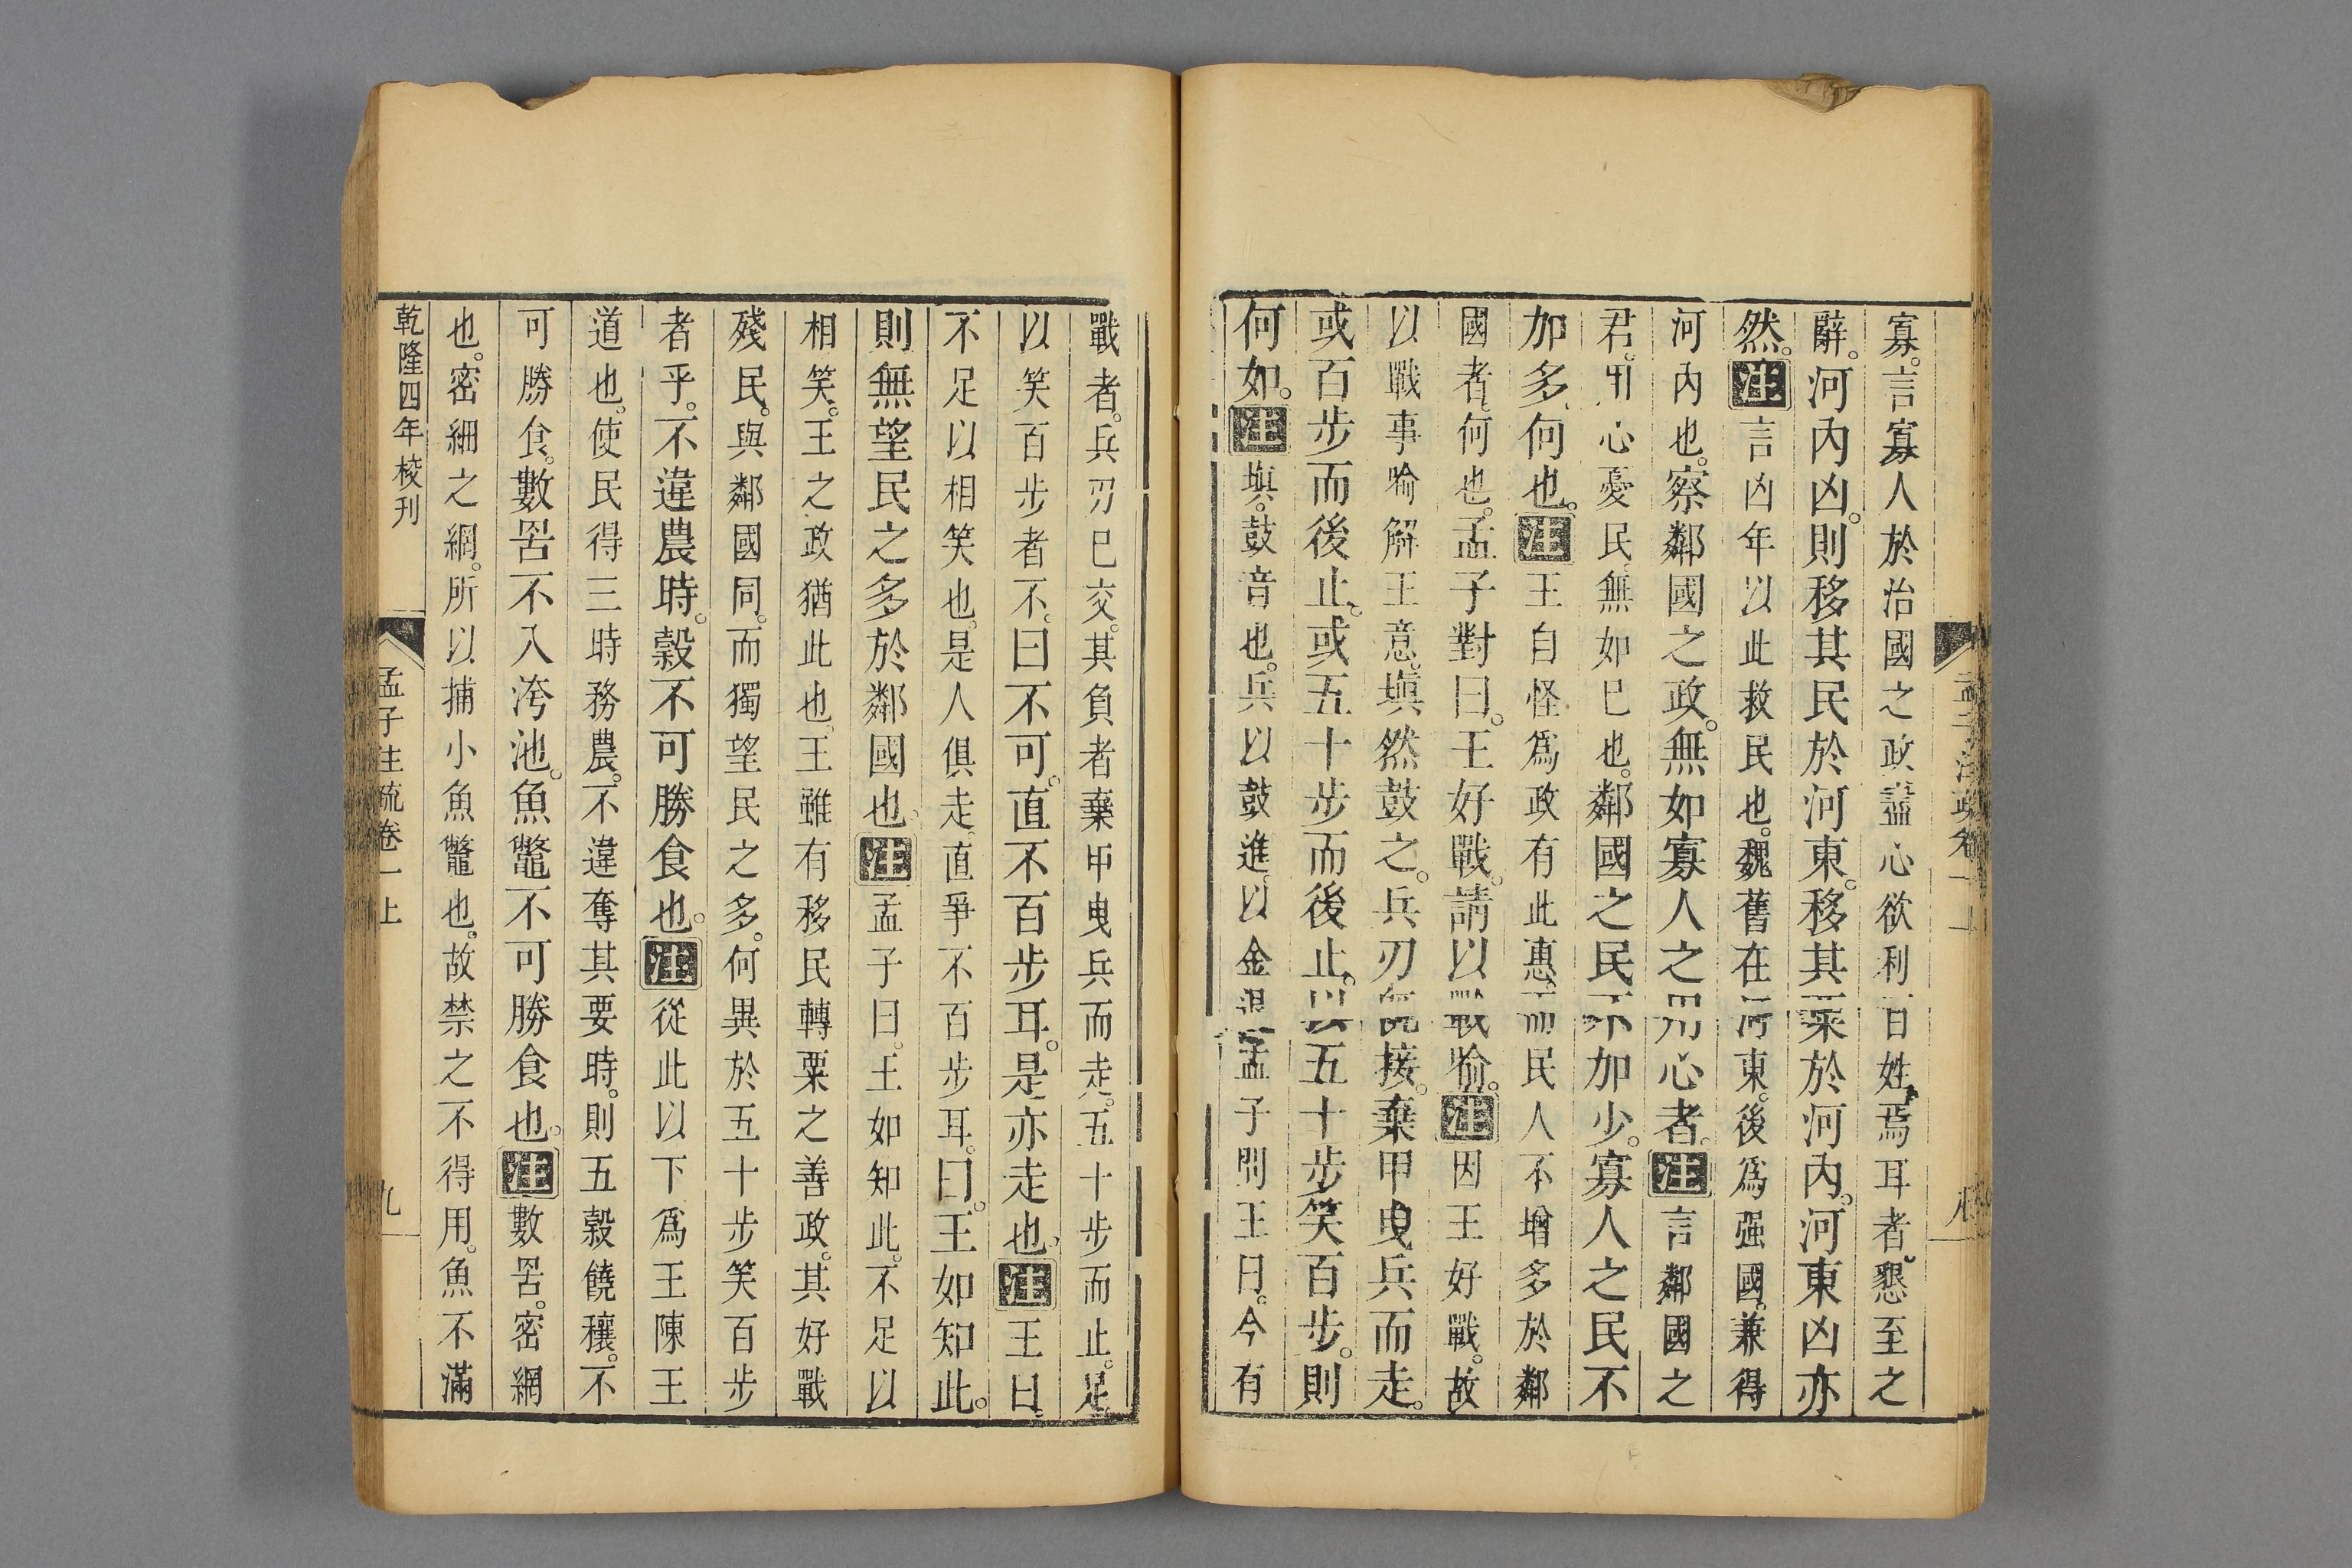 寡。言寡人於治國之政。盡心欲利百姓。焉耳者。懇至之
辭。河內凶。則移其民於河東。移其粟於河內。河東凶亦
然。注言凶年以此救民也。魏舊在河東。後爲强國。兼得
河內也。察鄰國之政。無如寡人之用心者。注言鄰國之
君。用心憂民。無如已也。鄰國之民不加少。寡人之民不
加多。何也。注王自怪爲政有此惠。而民人不增多於鄰
國者。何也。孟子對曰。王好戰。請以戰喻。注因王好戰。故
以戰事喻解王意。塡然鼓之。兵刃旣接。棄甲曳兵而走。
或百步而後止。或五十步而後止。以五十步笑百步。則
何如。注塡。鼓音也。兵以鼓進。以金退。孟子問王曰。今有
孟子注疏卷一上 八
戰者。兵刃已交。其負者棄甲曳兵而走。五十步而止。足
以笑百步者不。曰不可。直不百步耳。是亦走也。注王曰。
不足以相笑也。是人俱走。直爭不百步耳。曰。王如知此。
則無望民之多於鄰國也。注孟子曰。王如知此。不足以
相笑。王之政猶此也。王雖有移民轉粟之善政。其好戰
殘民。與鄰國同。而獨望民之多。何異於五十步笑百步
者乎。不違農時。穀不可勝食也。注從此以下爲王陳王
道也。使民得三時務農。不違奪其要時。則五穀饒穰。不
可勝食。數罟不入洿池。魚鼈不可勝食也。注數罟。密網
也。密細之網。所以捕小魚鼈也。故禁之不得用。魚不滿
乾隆四年校刊 孟子注疏卷一上 九